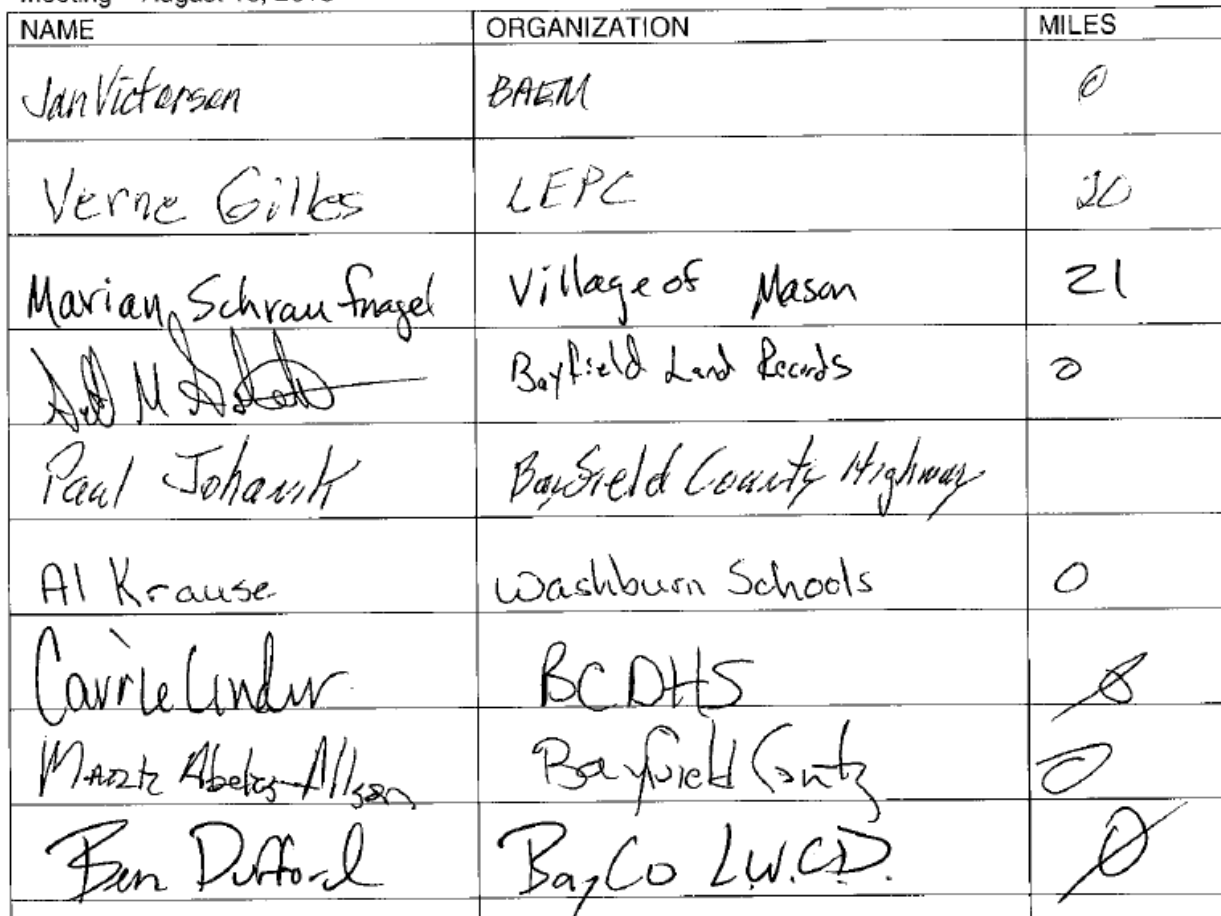 NAME ORGANIZATION MILES
Jan Victorson BAEM 0
Verne Gilles LEPC 20
Marian Schraufnagel Village of Mason 21
M Bayfield Land Records 0
Paul Johanik Bayfield County Highway
Al Krause Washburn Schools 0
Carrie Linder BCDHS 0
Abeles-Allison Bayfield County 0
Ben Dufford BayCo L.W.C.D. 0